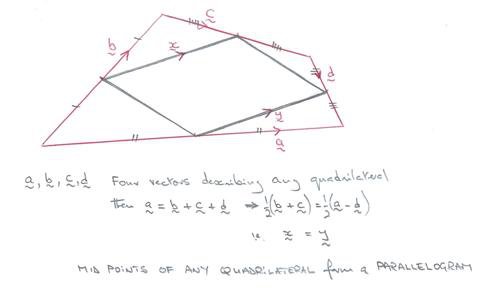 c
b
x
d
y
a
a, b, c, d Four vectors describing any quadrilateral
then a = b + c + d ⇒ ½(b + c) = ½(a - d)
i.e. x = y
MID POINTS OF ANY QUADRILATERAL form a PARALLELOGRAM